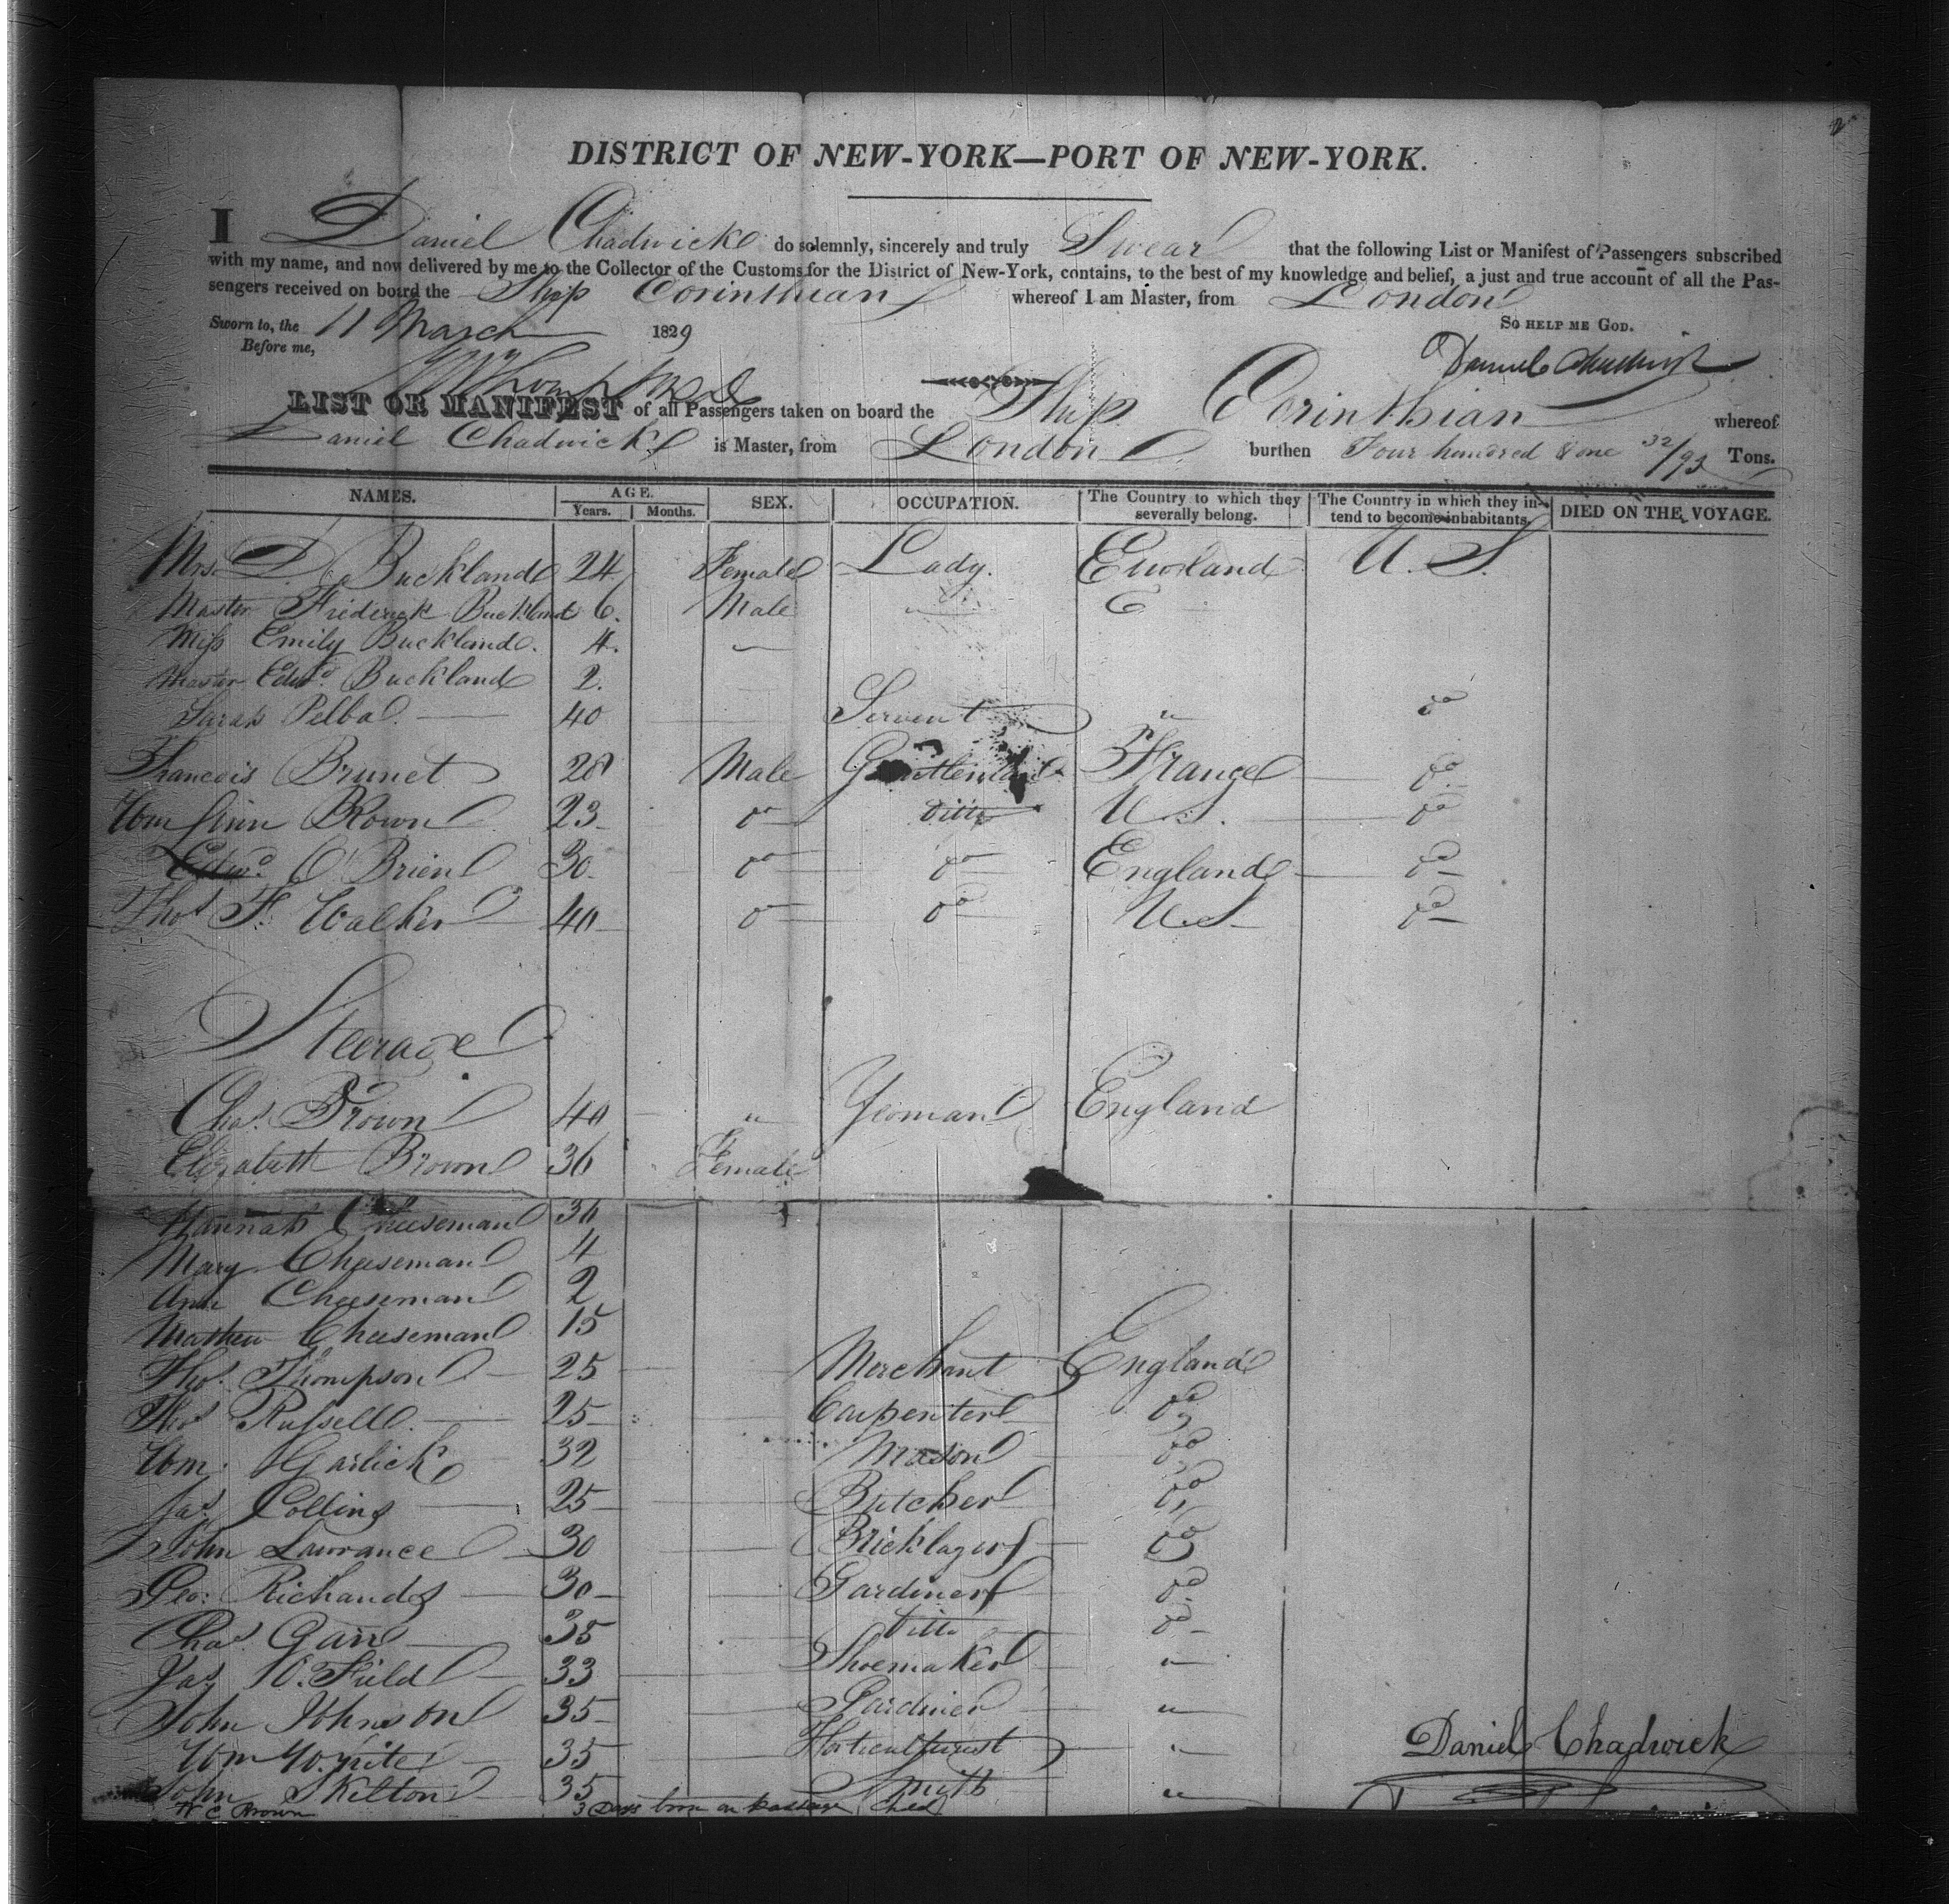 2
DISTRICT OF NEW-YORK—PORT OF NEW-YORK.
I Daniel Chadwick do solemnly, sincerely and truly Swear that the following List or Manifest of Passengers subscribed
with my name, and now delivered by me to the Collector of the Customs for the District of New-York, contains, to the best of my knowledge and belief, a just and true account of all the Pas-
sengers received on board the Ship Corinthian whereof I am Master, from London
Sworn to, the 11 March 1829 So HELP ME GOD.
Before me, Daniel Chadwick
LIST OR MANIFEST of all Passengers taken on board the Ship Corinthian whereof
Daniel Chadwick is Master, from London burthen Four hundred & one 32/95 Tons.
NAMES. AGE. Years. Months. SEX. OCCUPATION. The Country to which they severally belong. The Country in which they intend to become inhabitants. DIED ON THE VOYAGE.
Mrs D. Buckland 24 Female Lady. England U.S.
Master Frederick Buckland 6. Male
Miss Emily Buckland. 4.
Master Edwd. Buckland 2.
Sarah 40 Servent " do
Francois Brunet 28 Male Gentleman France do
Wm Brown 23 do ditto U.S. do
Edwd. O'Brien 30 do do England do
Thos F. Walker 40 do do U.S. do
Steerage
Chas. Brown 40 " Yeoman England
Elizabeth Brown 36 Female
Hannah Cheeseman 36
Mary Cheeseman 4
Ann Cheeseman 2
Mathew Cheeseman 15
Thos. Thompson 25 Merchant England
Thos Russell 25 Carpenter do
Wm. Garlick 32 Mason do
Jas. Collins 25 Butcher do
John Lawrance 30 Bricklayer do
Geo: Richards 30 Gardiner do
Chas. Gann 35 ditto do
Jas W. Field 33 Shoemaker "
John Johnson 35 Gardiner "
Wm 35 Horticulturist "
John Skelton 35 Smith "
Daniel Chadwick
W C Brown 3 Days born on passage Ched